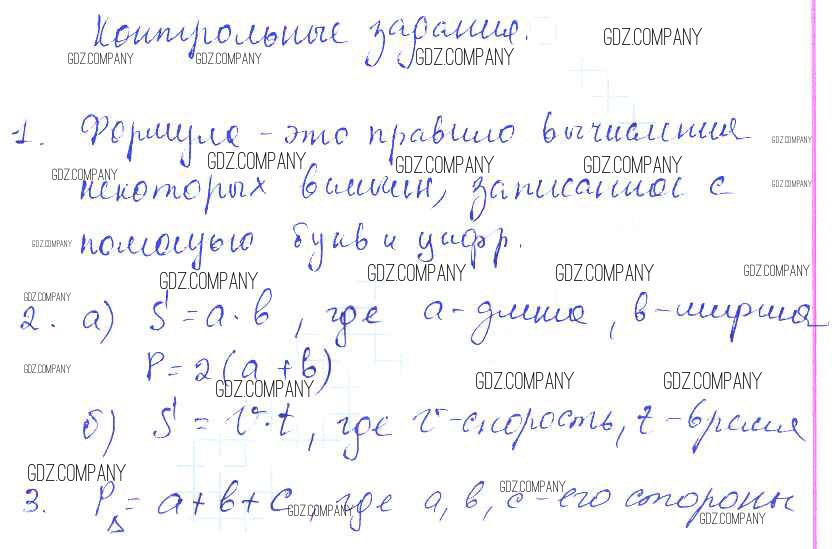 Контрольные задания.
GDZ.COMPANY GDZ.COMPANY GDZ.COMPANY GDZ.COMPANY
1. Формула - это правило вычисления
GDZ.COMPANY GDZ.COMPANY GDZ.COMPANY GDZ.COMPANY GDZ.COMPANY
некоторых величин, записанное с
GDZ.COMPANY
помощью букв и цифр.
GDZ.COMPANY
GDZ.COMPANY GDZ.COMPANY GDZ.COMPANY GDZ.COMPANY
GDZ.COMPANY
2. а) S = a · b, где a - длина, b - ширина
P = 2(a + b)
GDZ.COMPANY GDZ.COMPANY GDZ.COMPANY GDZ.COMPANY
б) S = v · t, где v - скорость, t - время
GDZ.COMPANY GDZ.COMPANY
3. P△ = a + b + c, где a, b, c - его стороны
GDZ.COMPANY GDZ.COMPANY